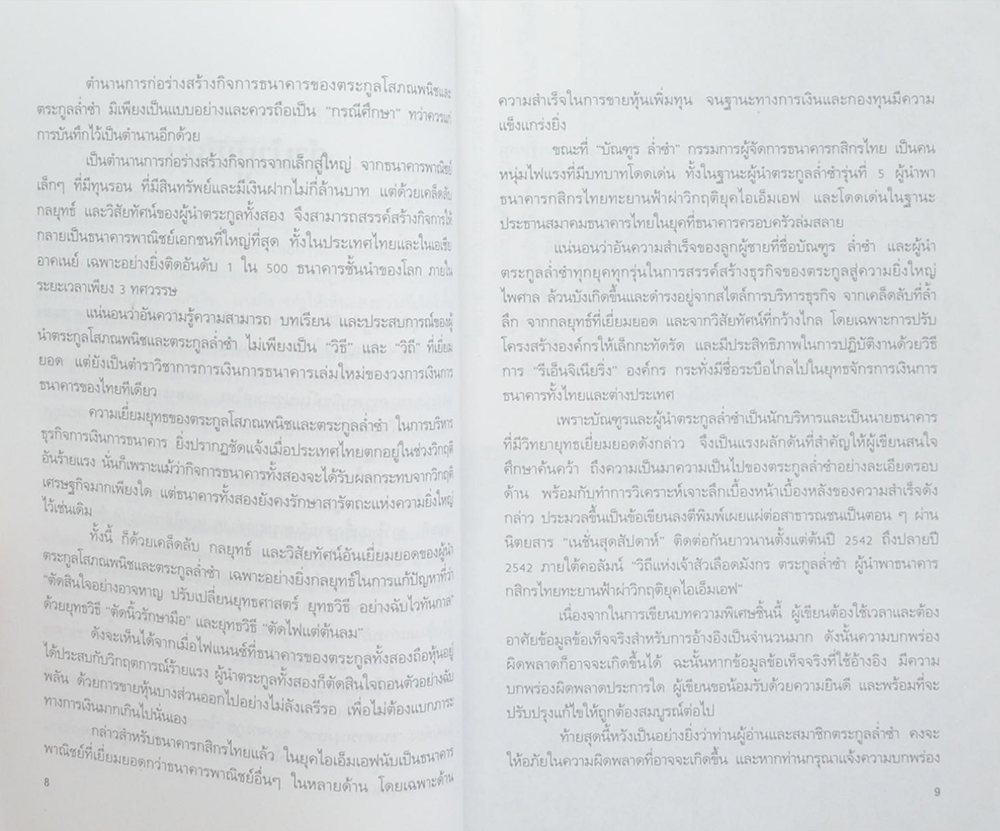 ตำนานการก่อร่างสร้างกิจการธนาคารของตระกูลโสภณพนิชและ
ตระกูลล่ำซำ มิเพียงเป็นแบบอย่างและควรถือเป็น "กรณีศึกษา" ทว่าควรแก่
การบันทึกไว้เป็นตำนานอีกด้วย
เป็นตำนานการก่อร่างสร้างกิจการจากเล็กสู่ใหญ่ จากธนาคารพาณิชย์
เล็กๆ ที่มีทุนรอน ที่มีสินทรัพย์และมีเงินฝากไม่กี่ล้านบาท แต่ด้วยเคล็ดลับ
กลยุทธ์ และวิสัยทัศน์ของผู้นำตระกูลทั้งสอง จึงสามารถสรรค์สร้างกิจการให้
กลายเป็นธนาคารพาณิชย์เอกชนที่ใหญ่ที่สุด ทั้งในประเทศไทยและในเอเชีย
อาคเนย์ เฉพาะอย่างยิ่งติดอันดับ 1 ใน 500 ธนาคารชั้นนำของโลก ภายใน
ระยะเวลาเพียง 3 ทศวรรษ
แน่นอนว่าอันความรู้ความสามารถ บทเรียน และประสบการณ์ของผู้
นำตระกูลโสภณพนิชและตระกูลล่ำซำ ไม่เพียงเป็น "วิธี" และ "วิถี" ที่เยี่ยม
ยอด แต่ยังเป็นตำราวิชาการการเงินการธนาคารเล่มใหม่ของวงการเงินการ
ธนาคารของไทยทีเดียว
ความเยี่ยมยุทธของตระกูลโสภณพนิชและตระกูลล่ำซำ ในการบริหาร
ธุรกิจการเงินการธนาคาร ยิ่งปรากฏชัดแจ้งเมื่อประเทศไทยตกอยู่ในช่วงวิกฤติ
อันร้ายแรง นั่นก็เพราะแม้ว่ากิจการธนาคารทั้งสองจะได้รับผลกระทบจากวิกฤติ
เศรษฐกิจมากเพียงใด แต่ธนาคารทั้งสองยังคงรักษาสารัตถะแห่งความยิ่งใหญ่
ไว้เช่นเดิม
ทั้งนี้ ก็ด้วยเคล็ดลับ กลยุทธ์ และวิสัยทัศน์อันเยี่ยมยอดของผู้นำ
ตระกูลโสภณพนิชและตระกูลล่ำซำ เฉพาะอย่างยิ่งกลยุทธ์ในการแก้ปัญหาที่ว่า
"ตัดสินใจอย่างอาจหาญ ปรับเปลี่ยนยุทธศาสตร์ ยุทธวิธี อย่างฉับไวทันกาล"
ด้วยยุทธวิธี "ตัดนิ้วรักษามือ" และยุทธวิธี "ตัดไฟแต่ต้นลม"
ดังจะเห็นได้จากเมื่อไฟแนนซ์ที่ธนาคารของตระกูลทั้งสองถือหุ้นอยู่
ได้ประสบกับวิกฤตการณ์ร้ายแรง ผู้นำตระกูลทั้งสองก็ตัดสินใจถอนตัวอย่างฉับ
พลัน ด้วยการขายหุ้นบางส่วนออกไปอย่างไม่ลังเลรีรอ เพื่อไม่ต้องแบกภาระ
ทางการเงินมากเกินไปนั่นเอง
กล่าวสำหรับธนาคารกสิกรไทยแล้ว ในยุคไอเอ็มเอฟนับเป็นธนาคาร
พาณิชย์ที่เยี่ยมยอดกว่าธนาคารพาณิชย์อื่นๆ ในหลายด้าน โดยเฉพาะด้าน
8
ความสำเร็จในการขายหุ้นเพิ่มทุน จนฐานะทางการเงินและกองทุนมีความ
แข็งแกร่งยิ่ง
ขณะที่ "บัณฑูร ล่ำซำ" กรรมการผู้จัดการธนาคารกสิกรไทย เป็นคน
หนุ่มไฟแรงที่มีบทบาทโดดเด่น ทั้งในฐานะผู้นำตระกูลล่ำซำรุ่นที่ 5 ผู้นำพา
ธนาคารกสิกรไทยทะยานฟ้าฝ่าวิกฤติยุคไอเอ็มเอฟ และโดดเด่นในฐานะ
ประธานสมาคมธนาคารไทยในยุคที่ธนาคารครอบครัวล่มสลาย
แน่นอนว่าอันความสำเร็จของลูกผู้ชายที่ชื่อบัณฑูร ล่ำซำ และผู้นำ
ตระกูลล่ำซำทุกยุคทุกรุ่นในการสรรค์สร้างธุรกิจของตระกูลสู่ความยิ่งใหญ่
ไพศาล ล้วนบังเกิดขึ้นและดำรงอยู่จากสไตล์การบริหารธุรกิจ จากเคล็ดลับที่ล้ำ
ลึก จากกลยุทธ์ที่เยี่ยมยอด และจากวิสัยทัศน์ที่กว้างไกล โดยเฉพาะการปรับ
โครงสร้างองค์กรให้เล็กกะทัดรัด และมีประสิทธิภาพในการปฏิบัติงานด้วยวิธี
การ "รีเอ็นจิเนียริ่ง" องค์กร กระทั่งมีชื่อระบือไกลไปในยุทธจักรการเงินการ
ธนาคารทั้งไทยและต่างประเทศ
เพราะบัณฑูรและผู้นำตระกูลล่ำซำเป็นนักบริหารและเป็นนายธนาคาร
ที่มีวิทยายุทธเยี่ยมยอดดังกล่าว จึงเป็นแรงผลักดันที่สำคัญให้ผู้เขียนสนใจ
ศึกษาค้นคว้า ถึงความเป็นมาความเป็นไปของตระกูลล่ำซำอย่างละเอียดรอบ
ด้าน พร้อมกับทำการวิเคราะห์เจาะลึกเบื้องหน้าเบื้องหลังของความสำเร็จดัง
กล่าว ประมวลขึ้นเป็นข้อเขียนลงตีพิมพ์เผยแผ่ต่อสาธารณชนเป็นตอน ๆ ผ่าน
นิตยสาร "เนชั่นสุดสัปดาห์" ติดต่อกันยาวนานตั้งแต่ต้นปี 2542 ถึงปลายปี
2542 ภายใต้คอลัมน์ "วิถีแห่งเจ้าสัวเลือดมังกร ตระกูลล่ำซำ ผู้นำพาธนาคาร
กสิกรไทยทะยานฟ้าฝ่าวิกฤติยุคไอเอ็มเอฟ"
เนื่องจากในการเขียนบทความพิเศษชิ้นนี้ ผู้เขียนต้องใช้เวลาและต้อง
อาศัยข้อมูลข้อเท็จจริงสำหรับการอ้างอิงเป็นจำนวนมาก ดังนั้นความบกพร่อง
ผิดพลาดก็อาจจะเกิดขึ้นได้ ฉะนั้นหากข้อมูลข้อเท็จจริงที่ใช้อ้างอิง มีความ
บกพร่องผิดพลาดประการใด ผู้เขียนขอน้อมรับด้วยความยินดี และพร้อมที่จะ
ปรับปรุงแก้ไขให้ถูกต้องสมบูรณ์ต่อไป
ท้ายสุดนี้หวังเป็นอย่างยิ่งว่าท่านผู้อ่านและสมาชิกตระกูลล่ำซำ คงจะ
ให้อภัยในความผิดพลาดที่อาจจะเกิดขึ้น และหากท่านกรุณาแจ้งความบกพร่อง
9